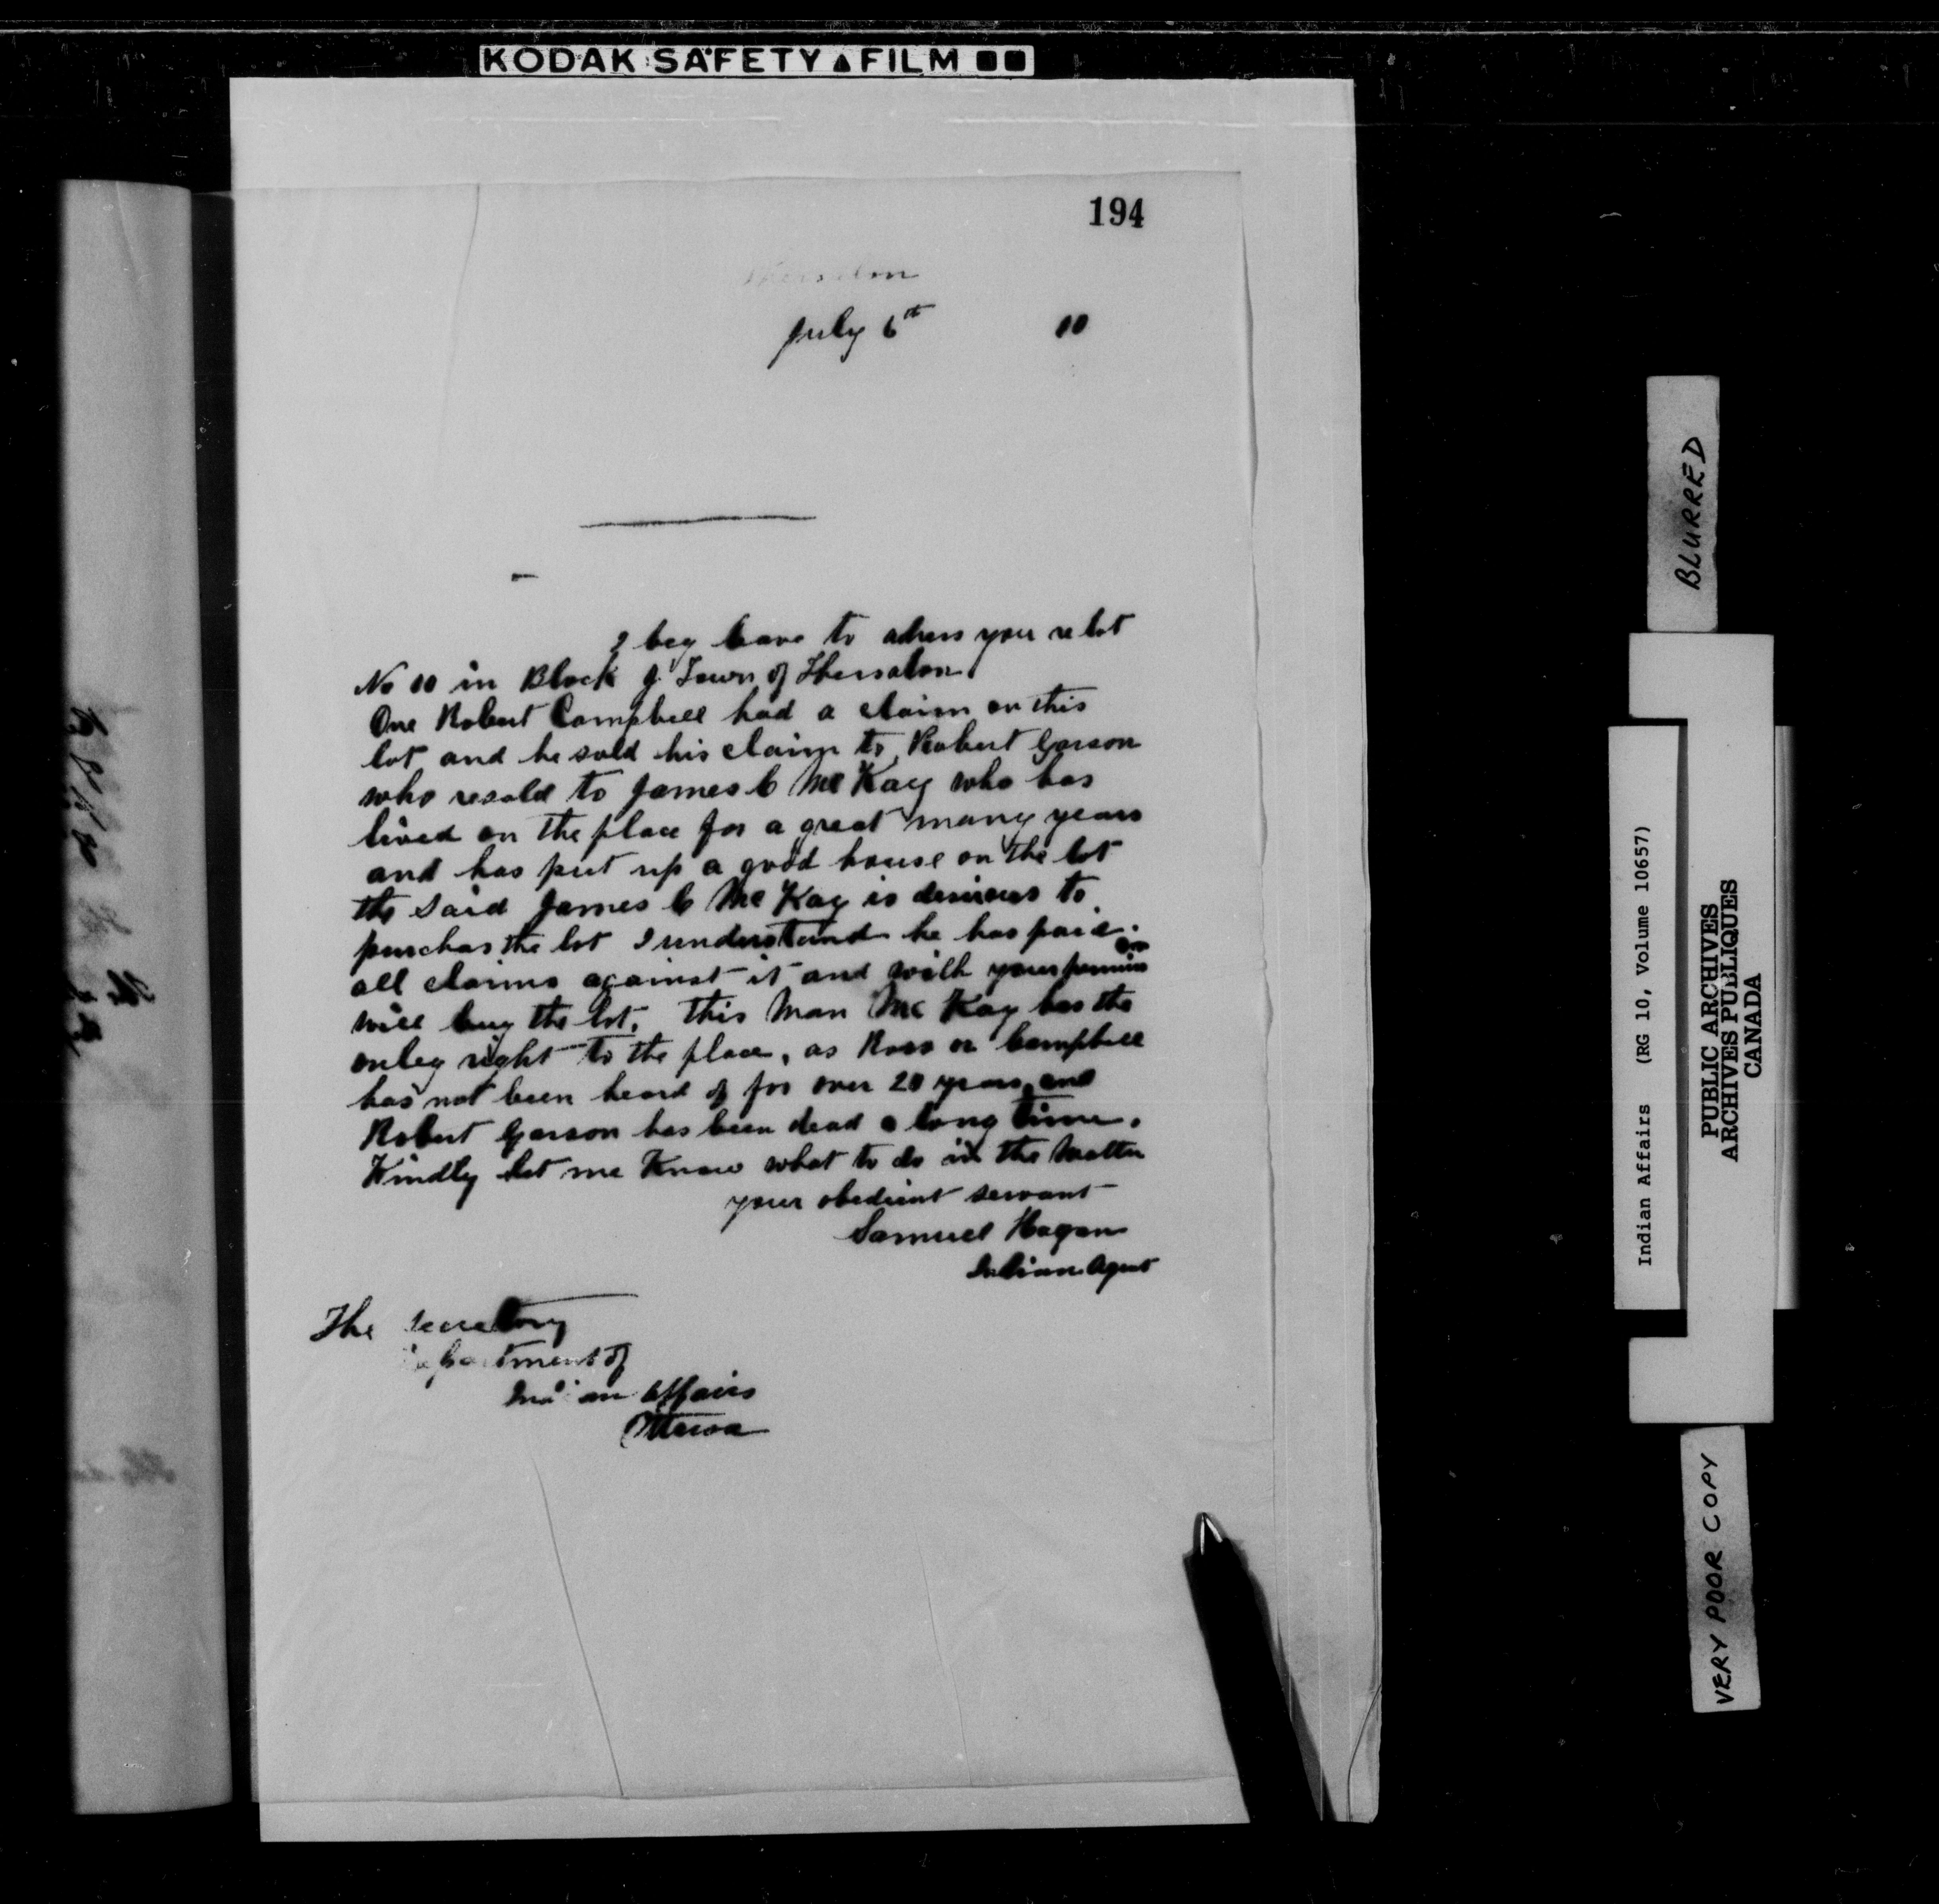 KODAK SAFETY FILM
194
Thessalon
July 6th 10
I beg leave to adress you re lot
No 10 in Block J Town of Thessalon
One Robert Campbell had a claim on this
lot and he sold his claim to Robert Garson
who resold to James C McKay who has
lived on the place for a great many years
and has put up a good house on the lot
the said James C McKay is desirous to
purchas the lot I understand he has paid
all claims against it and with your permission
will buy the lot. This man McKay has the
only right to the place, as Ross or Campbell
has not been heard of for over 20 years, and
Robert Garson has been dead a long time.
Kindly let me know what to do in the matter
your obedient servant
Samuel Hagan
Indian Agent
The Secretary
Department of
Indian Affairs
Ottawa
BLURRED
Indian Affairs (RG 10, Volume 10657)
PUBLIC ARCHIVES
ARCHIVES PUBLIQUES
CANADA
VERY POOR COPY